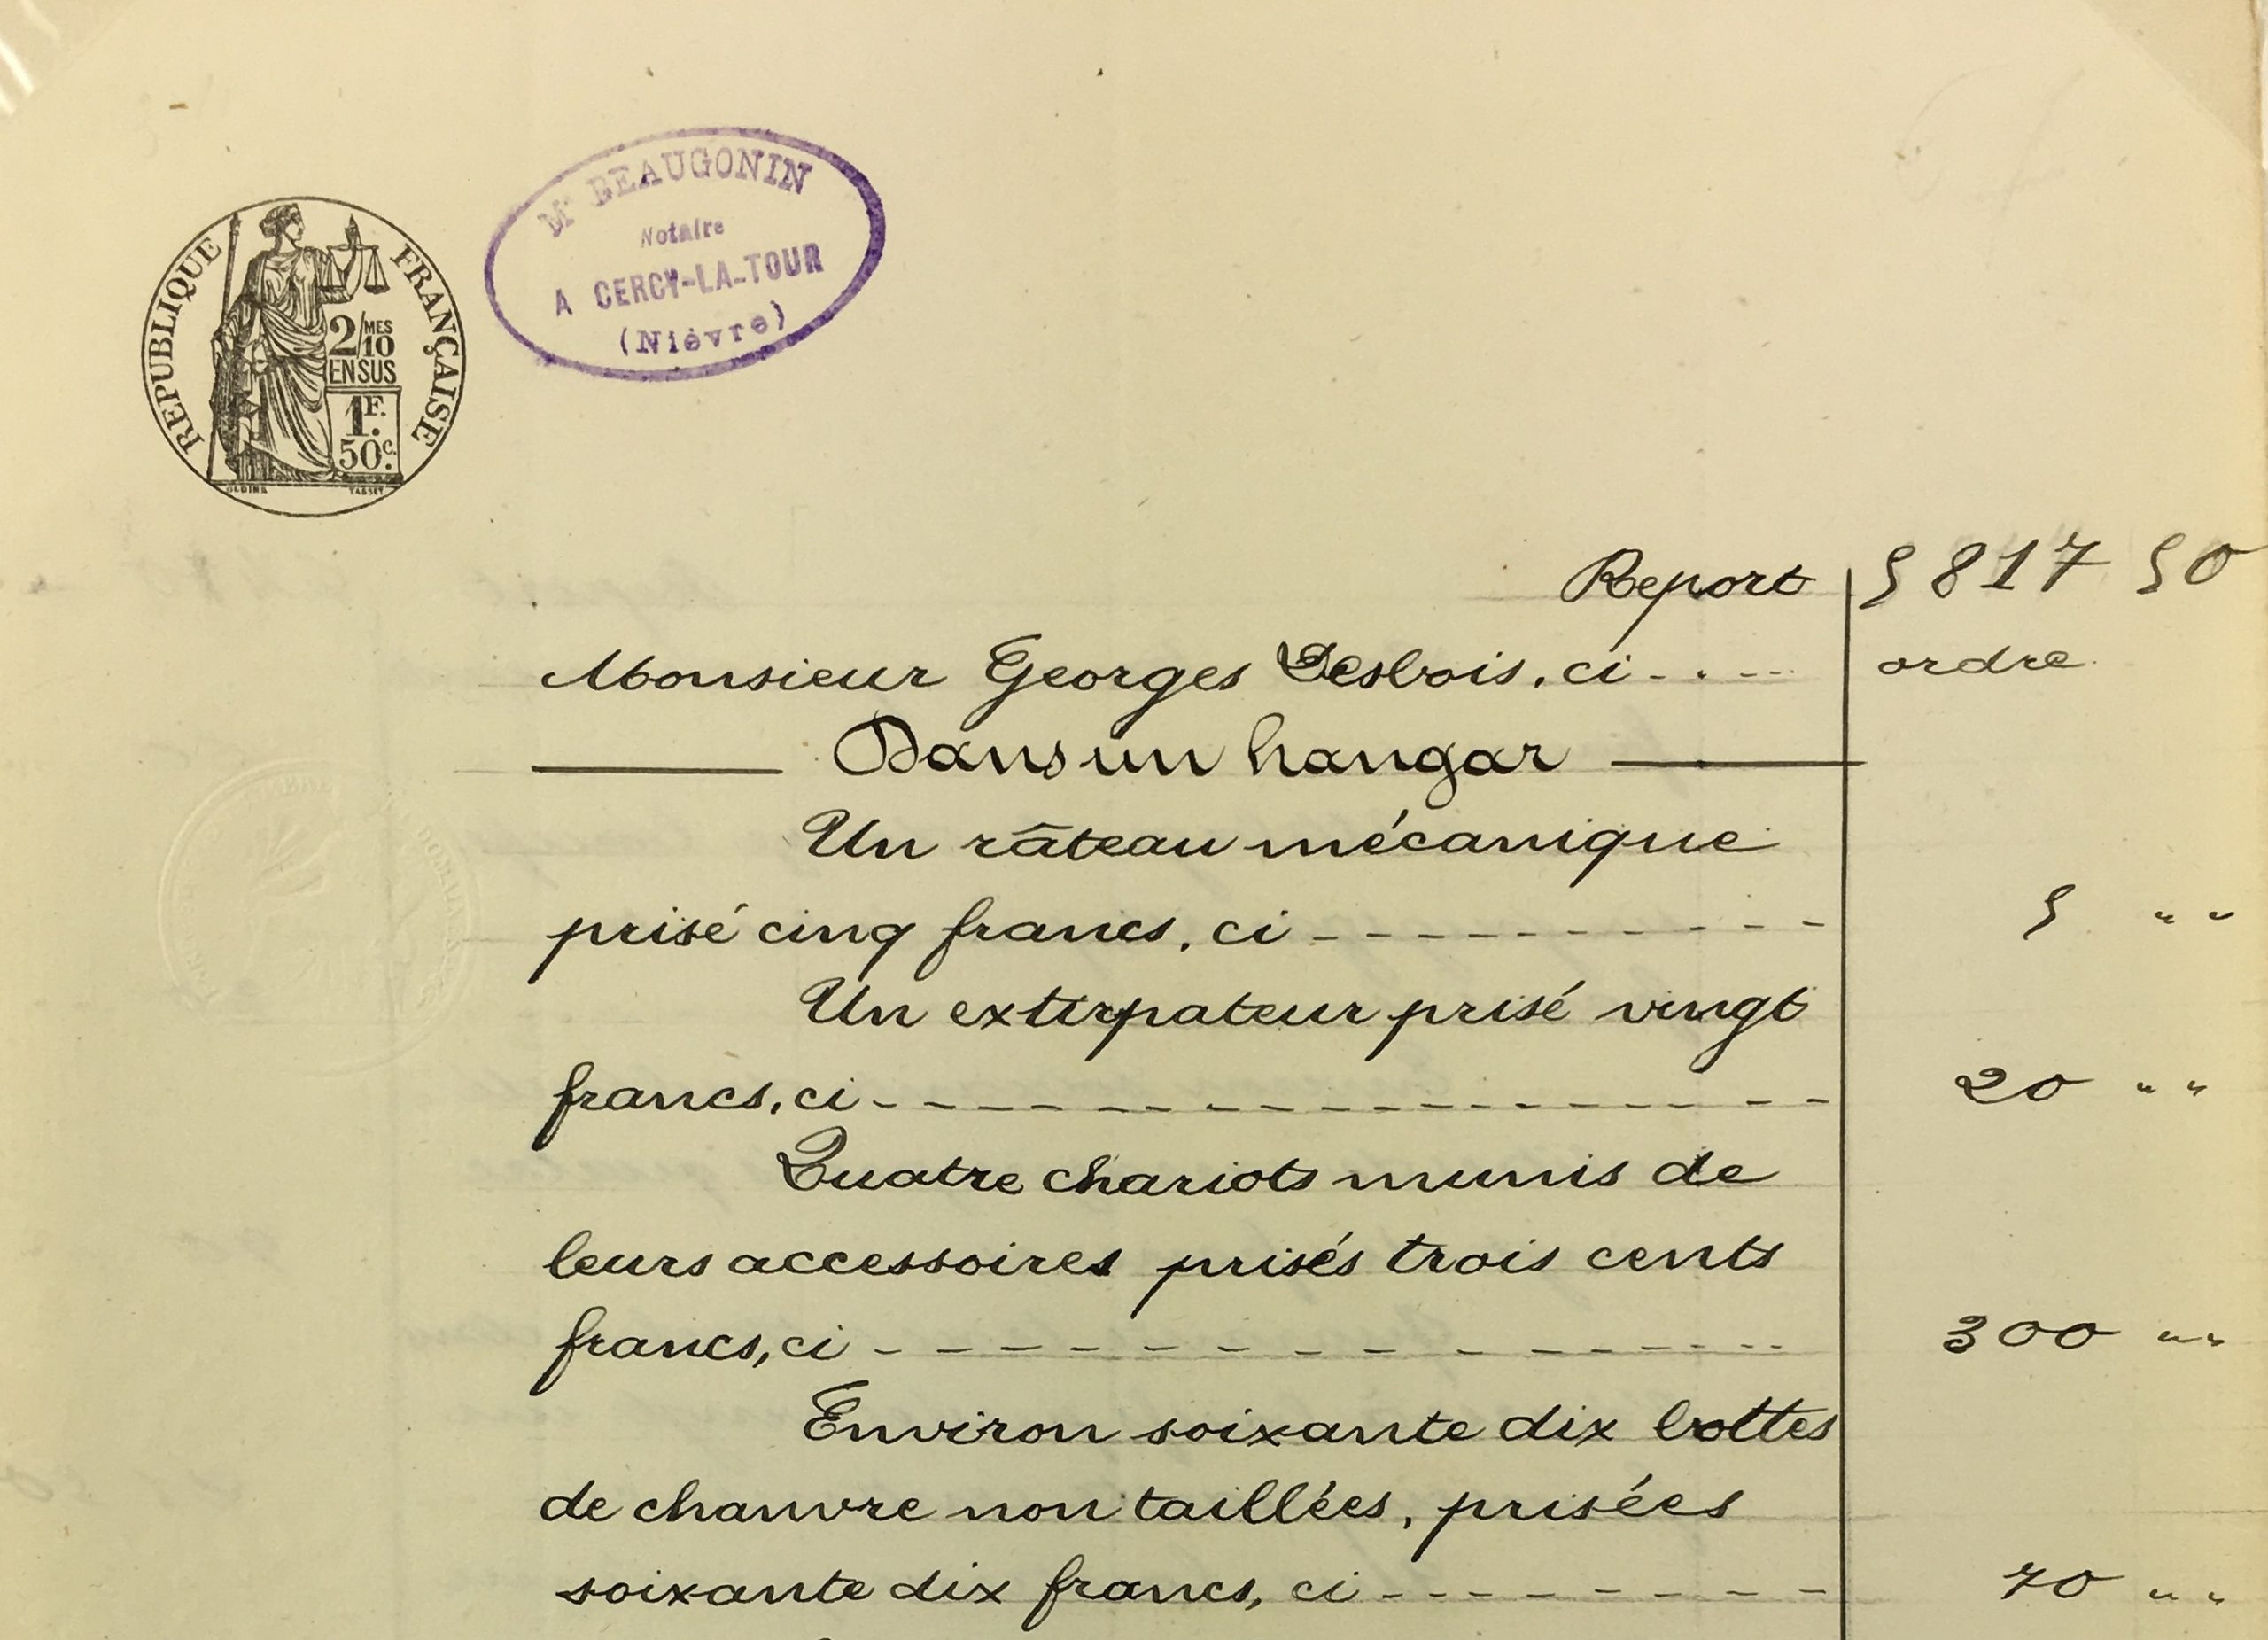 RÉPUBLIQUE FRANÇAISE
2/MES
10
EN SUS
1F.
50c.
OUDINÉ TASSET
Me BEAUGONIN
Notaire
A CERCY-LA-TOUR
(Nièvre)
Report 5817 50
Monsieur Georges Desbois, ci - - - - - ordre
Dans un hangar
Un râteau mécanique
prisé cinq francs, ci - - - - - - - - - - 5 " "
Un extirpateur prisé vingt
francs, ci - - - - - - - - - - - - - - - 20 " "
Quatre chariots munis de
leurs accessoires prisés trois cents
francs, ci - - - - - - - - - - - - - - - 300 " "
Environ soixante dix bottes
de chanvre non taillées, prisées
soixante dix francs, ci - - - - - - - - 70 " "